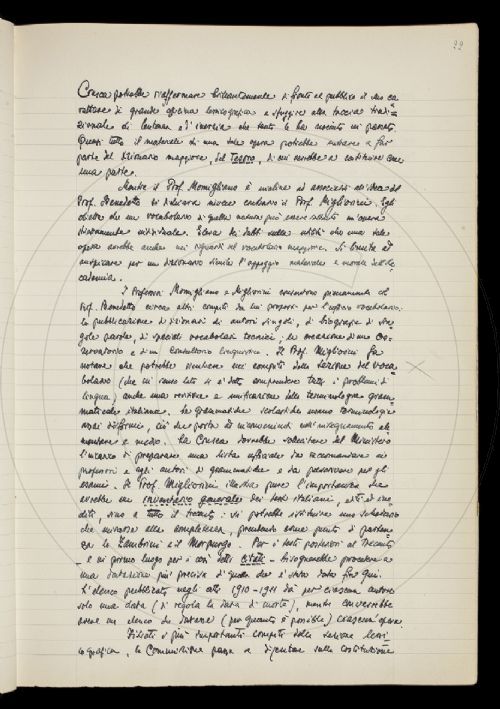 22
Crusca potrebbe riaffermare brillantemente di fronte al pubblico il suo ca-
rattere di grande officina lessicografica e sfuggire alla taccia tradi-
zionale di lentezza e d'inerzia che tanto le ha nociuto in passato.
Quasi tutto il materiale di una tale opera potrebbe entrare a far
parte del dizionario maggiore, del Tesoro, di cui verrebbe a costituire come
una parte.
Mentre il Prof. Momigliano è incline ad associarsi all'idea del
Prof. Benedetto si dichiara invece contrario il Prof. Migliorini. Egli
osserva che un vocabolario di quella natura può essere soltanto un'opera
strettamente individuale. Eleva dei dubbi sulla utilità che una tale
opera avrebbe anche nei riguardi del vocabolario maggiore. Si limita ad
auspicare per un dizionario simile l'appoggio materiale e morale dell'Ac-
cademia.
I Professori Momigliano e Migliorini consentono pienamente col
Prof. Benedetto circa altri compiti da lui proposti per l'ufficio vocabolario:
la pubblicazione di dizionari di autori singoli, di biografie di sin-
gole parole, di speciali vocabolari tecnici; la creazione di un os-
servatorio e di un consultorio linguistico. Il Prof. Migliorini fa
notare che potrebbe rientrare nei compiti della sezione del voca-
bolario (che in senso lato si è detto comprendere tutti i problemi di
lingua) anche una revisione e unificazione della terminologia gram-
maticale italiana. Le grammatiche scolastiche usano terminologie
assai difformi, ciò che porta ad inconvenienti nell'insegnamento ele-
mentare e medio. La Crusca dovrebbe sollecitare dal Ministero
l'incarico di preparare una lista ufficiale da raccomandare ai
professori e agli autori di grammatiche e da prescrivere per gli
esami. Il Prof. Migliorini illustra pure l'importanza che
avrebbe un inventario generale dei testi italiani, editi ed ine-
diti, sino a tutto il trecento: si potrebbe istituire uno schedario
che mirasse alla completezza, prendendo come punto di parten-
za lo Zambrini e il Morpurgo. Per i testi posteriori al Trecento
– e in primo luogo per i così detti citati – bisognerebbe procedere a
una datazione più precisa di quella che è stata data fin qui.
L'elenco pubblicato negli atti 1910-1911 dà per ciascun autore
solo una data (di regola la data di morte), mentre converrebbe
avere un elenco che datasse (per quanto è possibile) ciascuna opera.
Fissati i più importanti compiti della sezione lessi-
cografica, la Commissione passa a discutere sulla costituzione